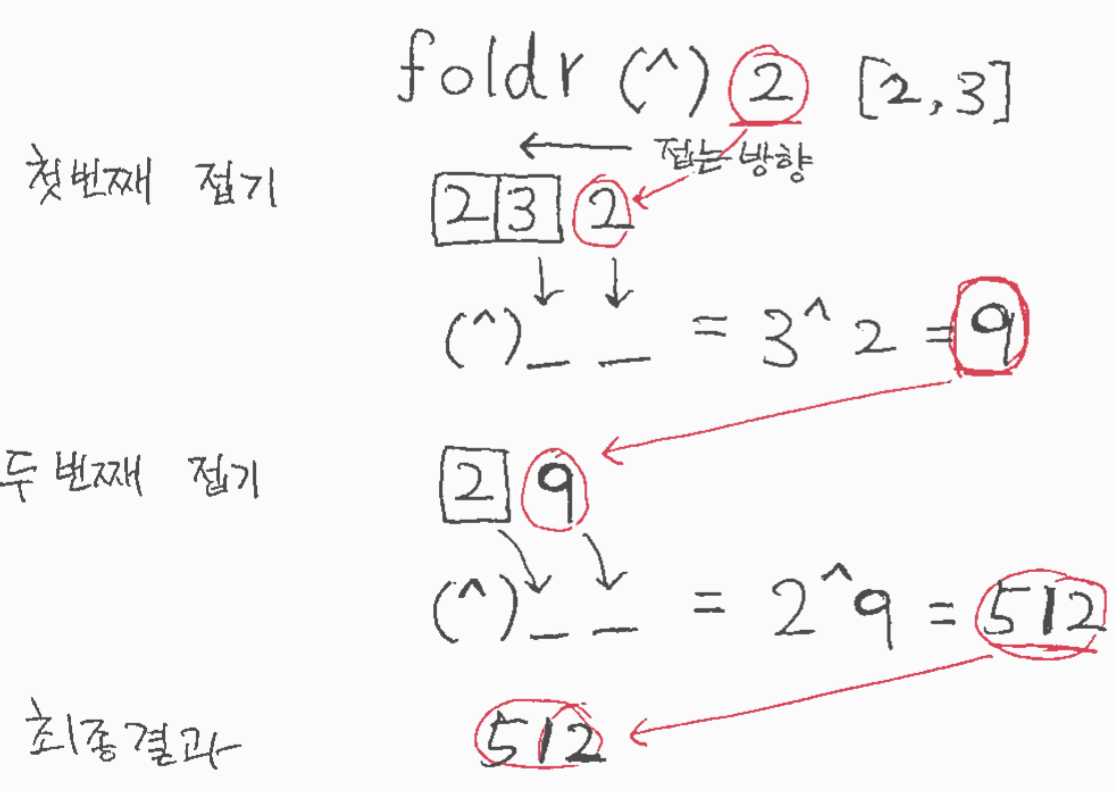 foldr (^) 2 [2,3]
← 접는 방향
첫번째 접기
2 3 2
(^) _ _ = 3^2 = 9
두번째 접기
2 9
(^) _ _ = 2^9 = 512
최종결과 512